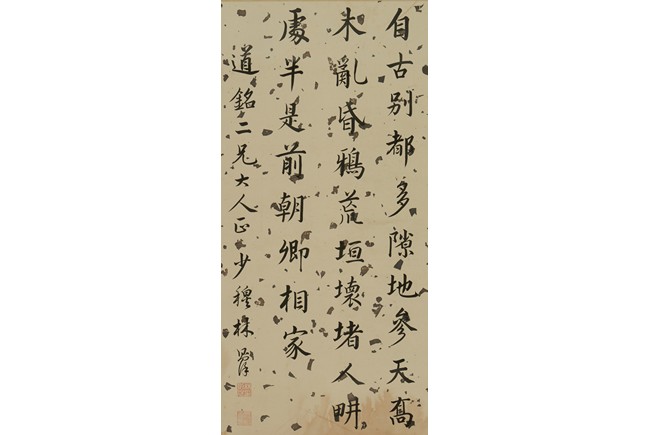 自古别都多隙地參天高
木亂昏鴉荒垣壞堵人畊
處半是前朝卿相家
道銘二兄大人正少穆林則徐